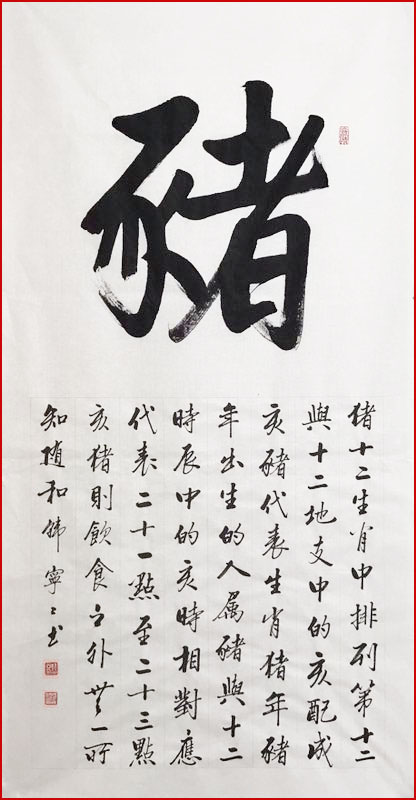 豬
猪十二生肖中排列第十二
與十二地支中的亥配成
亥豬代表生肖猪年豬
年出生的人属豬與十二
時辰中的亥時相對應
代表二十一點至二十三點
亥猪則飲食之外無一所
知随和寧〻书